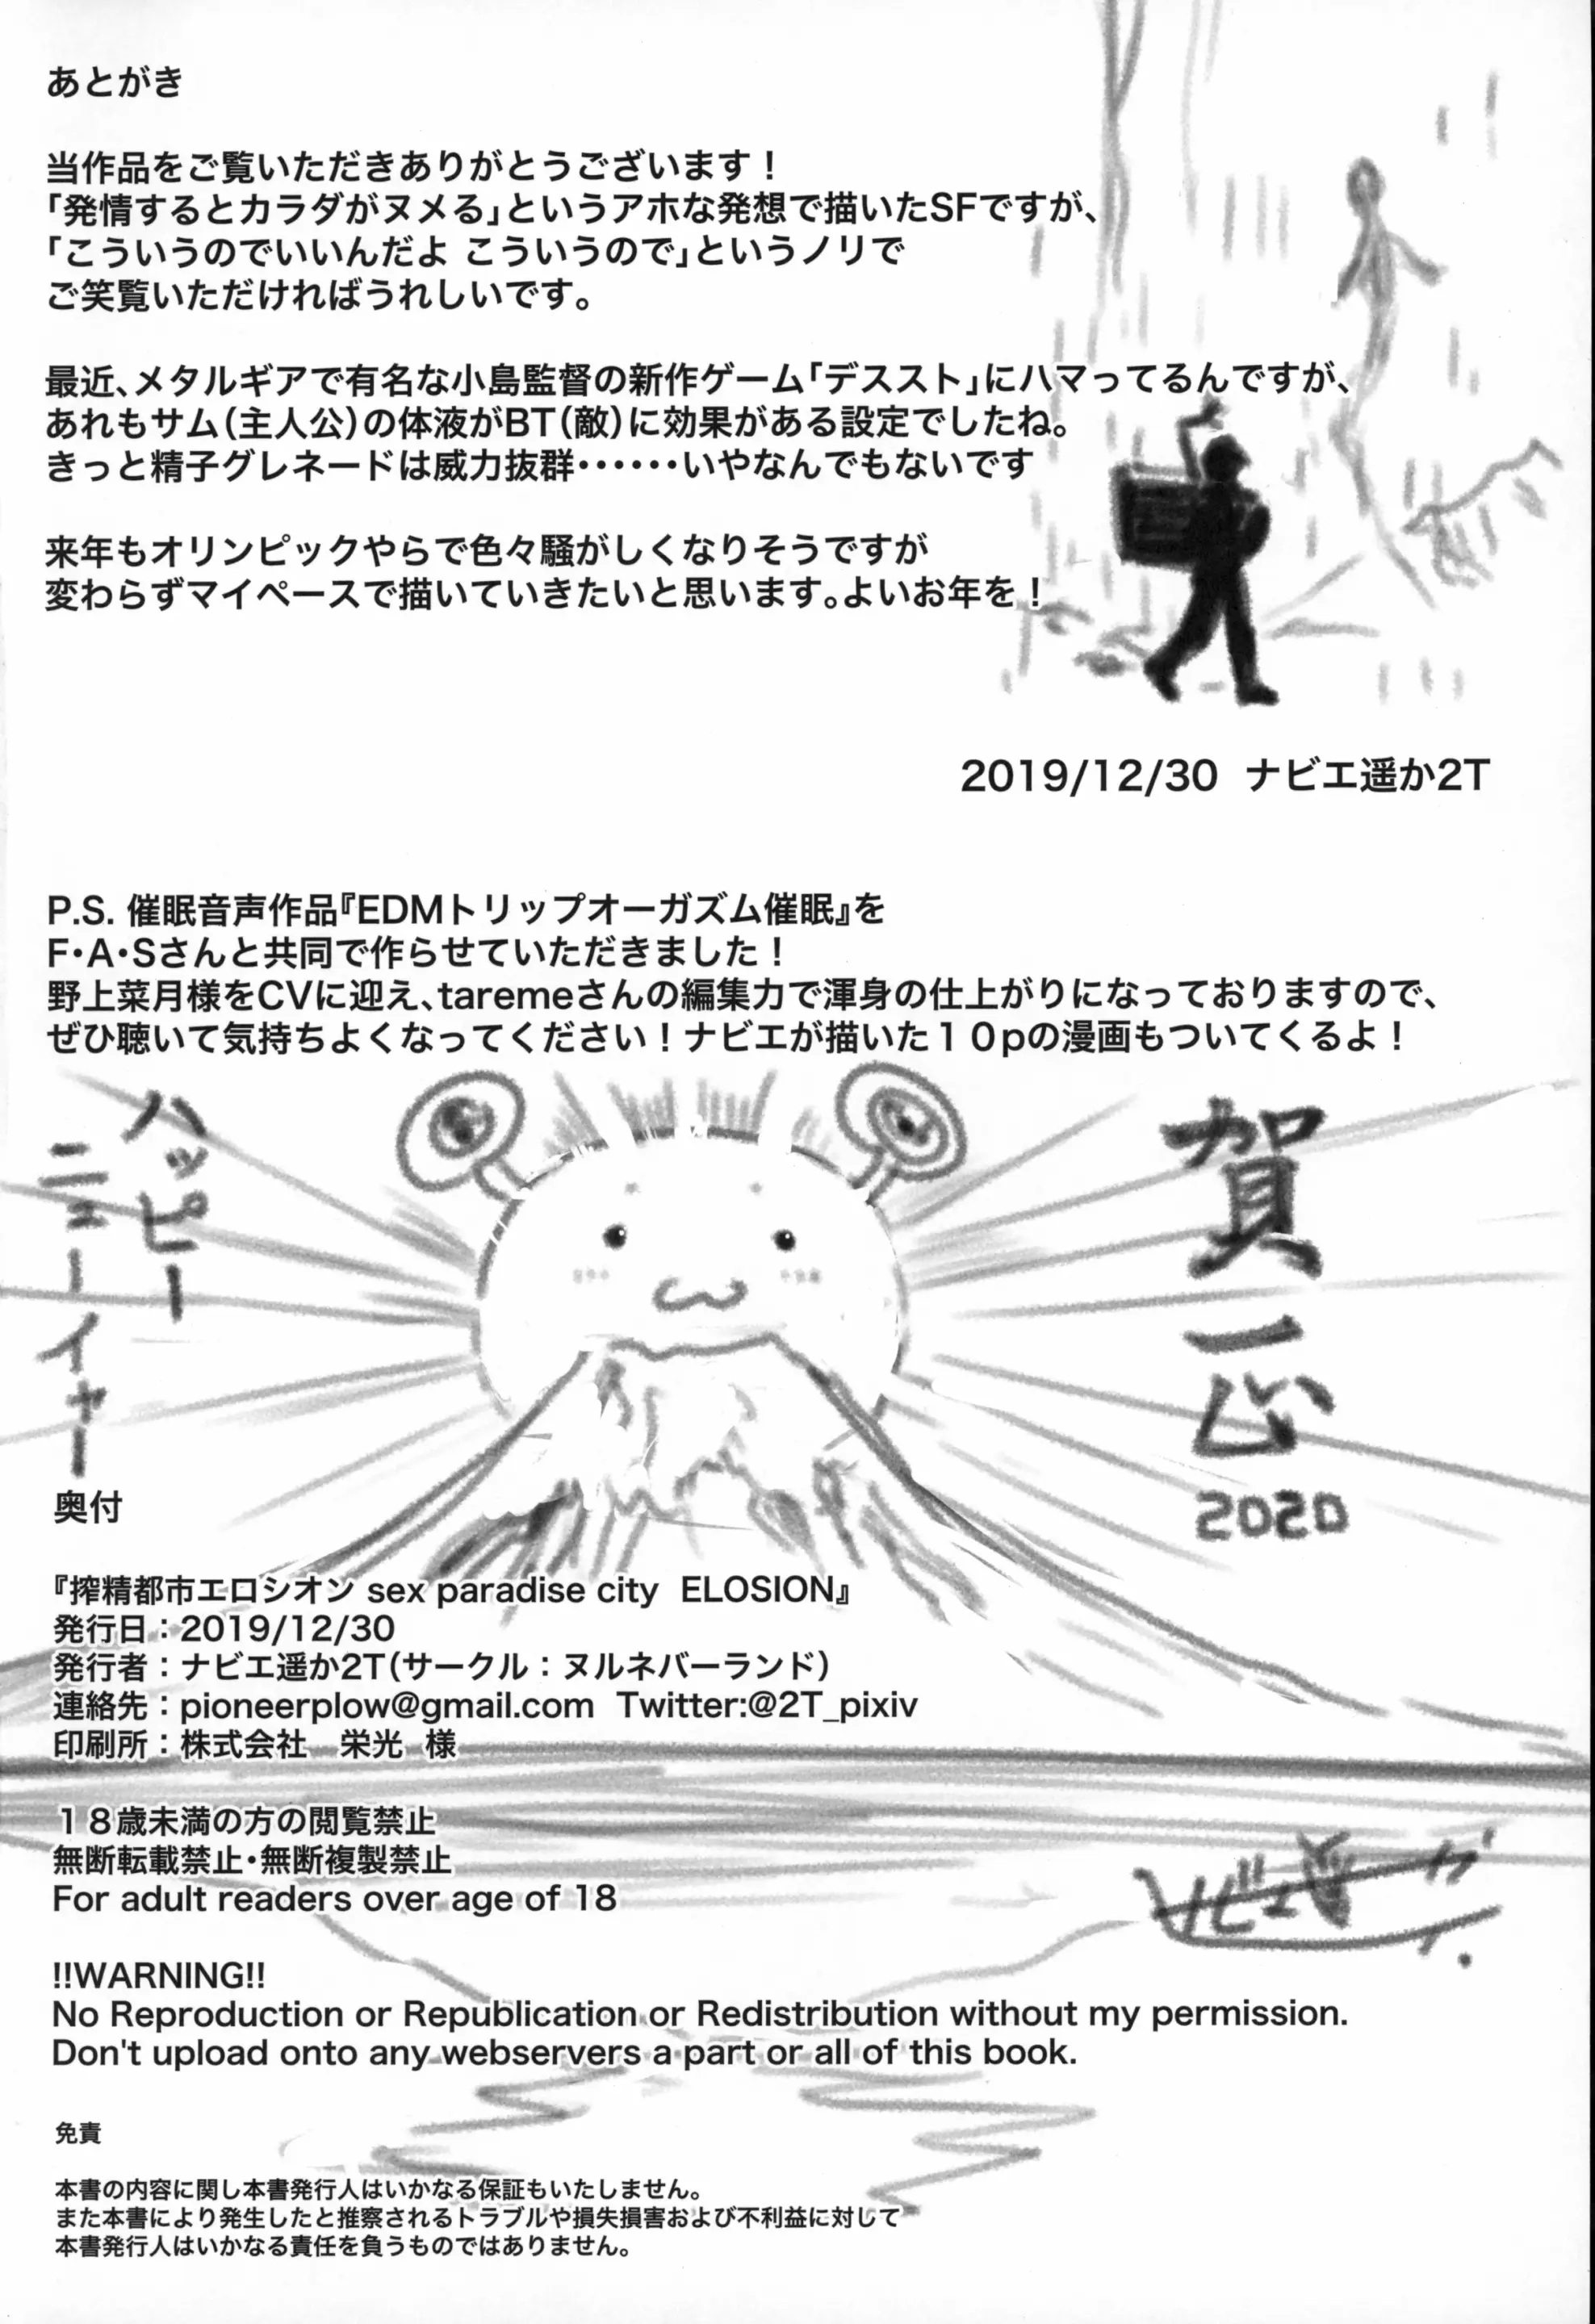 あとがき
当作品をご覧いただきありがとうございます！
「発情するとカラダがヌメる」というアホな発想で描いたSFですが、
「こういうのでいいんだよ こういうので」というノリで
ご笑覧いただければうれしいです。
最近、メタルギアで有名な小島監督の新作ゲーム「デススト」にハマってるんですが、
あれもサム（主人公）の体液がBT（敵）に効果がある設定でしたね。
きっと精子グレネードは威力抜群‥‥‥いやなんでもないです
来年もオリンピックやらで色々騒がしくなりそうですが
変わらずマイペースで描いていきたいと思います。よいお年を！
2019/12/30 ナビエ遥か2T
P.S. 催眠音声作品『EDMトリップオーガズム催眠』を
F・A・Sさんと共同で作らせていただきました！
野上菜月様をCVに迎え、taremeさんの編集力で渾身の仕上がりになっておりますので、
ぜひ聴いて気持ちよくなってください！ナビエが描いた１０pの漫画もついてくるよ！
賀正
2020
ハッピー
ニューイヤー
奥付
『搾精都市エロシオン sex paradise city ELOSION』
発行日：2019/12/30
発行者：ナビエ遥か2T(サークル：ヌルネバーランド)
連絡先：pioneerplow@gmail.com Twitter:@2T_pixiv
印刷所：株式会社　栄光 様
１８歳未満の方の閲覧禁止
無断転載禁止・無断複製禁止
For adult readers over age of 18
!!WARNING!!
No Reproduction or Republication or Redistribution without my permission.
Don't upload onto any webservers a part or all of this book.
免責
本書の内容に関し本書発行人はいかなる保証もいたしません。
また本書により発生したと推察されるトラブルや損失損害および不利益に対して
本書発行人はいかなる責任を負うものではありません。